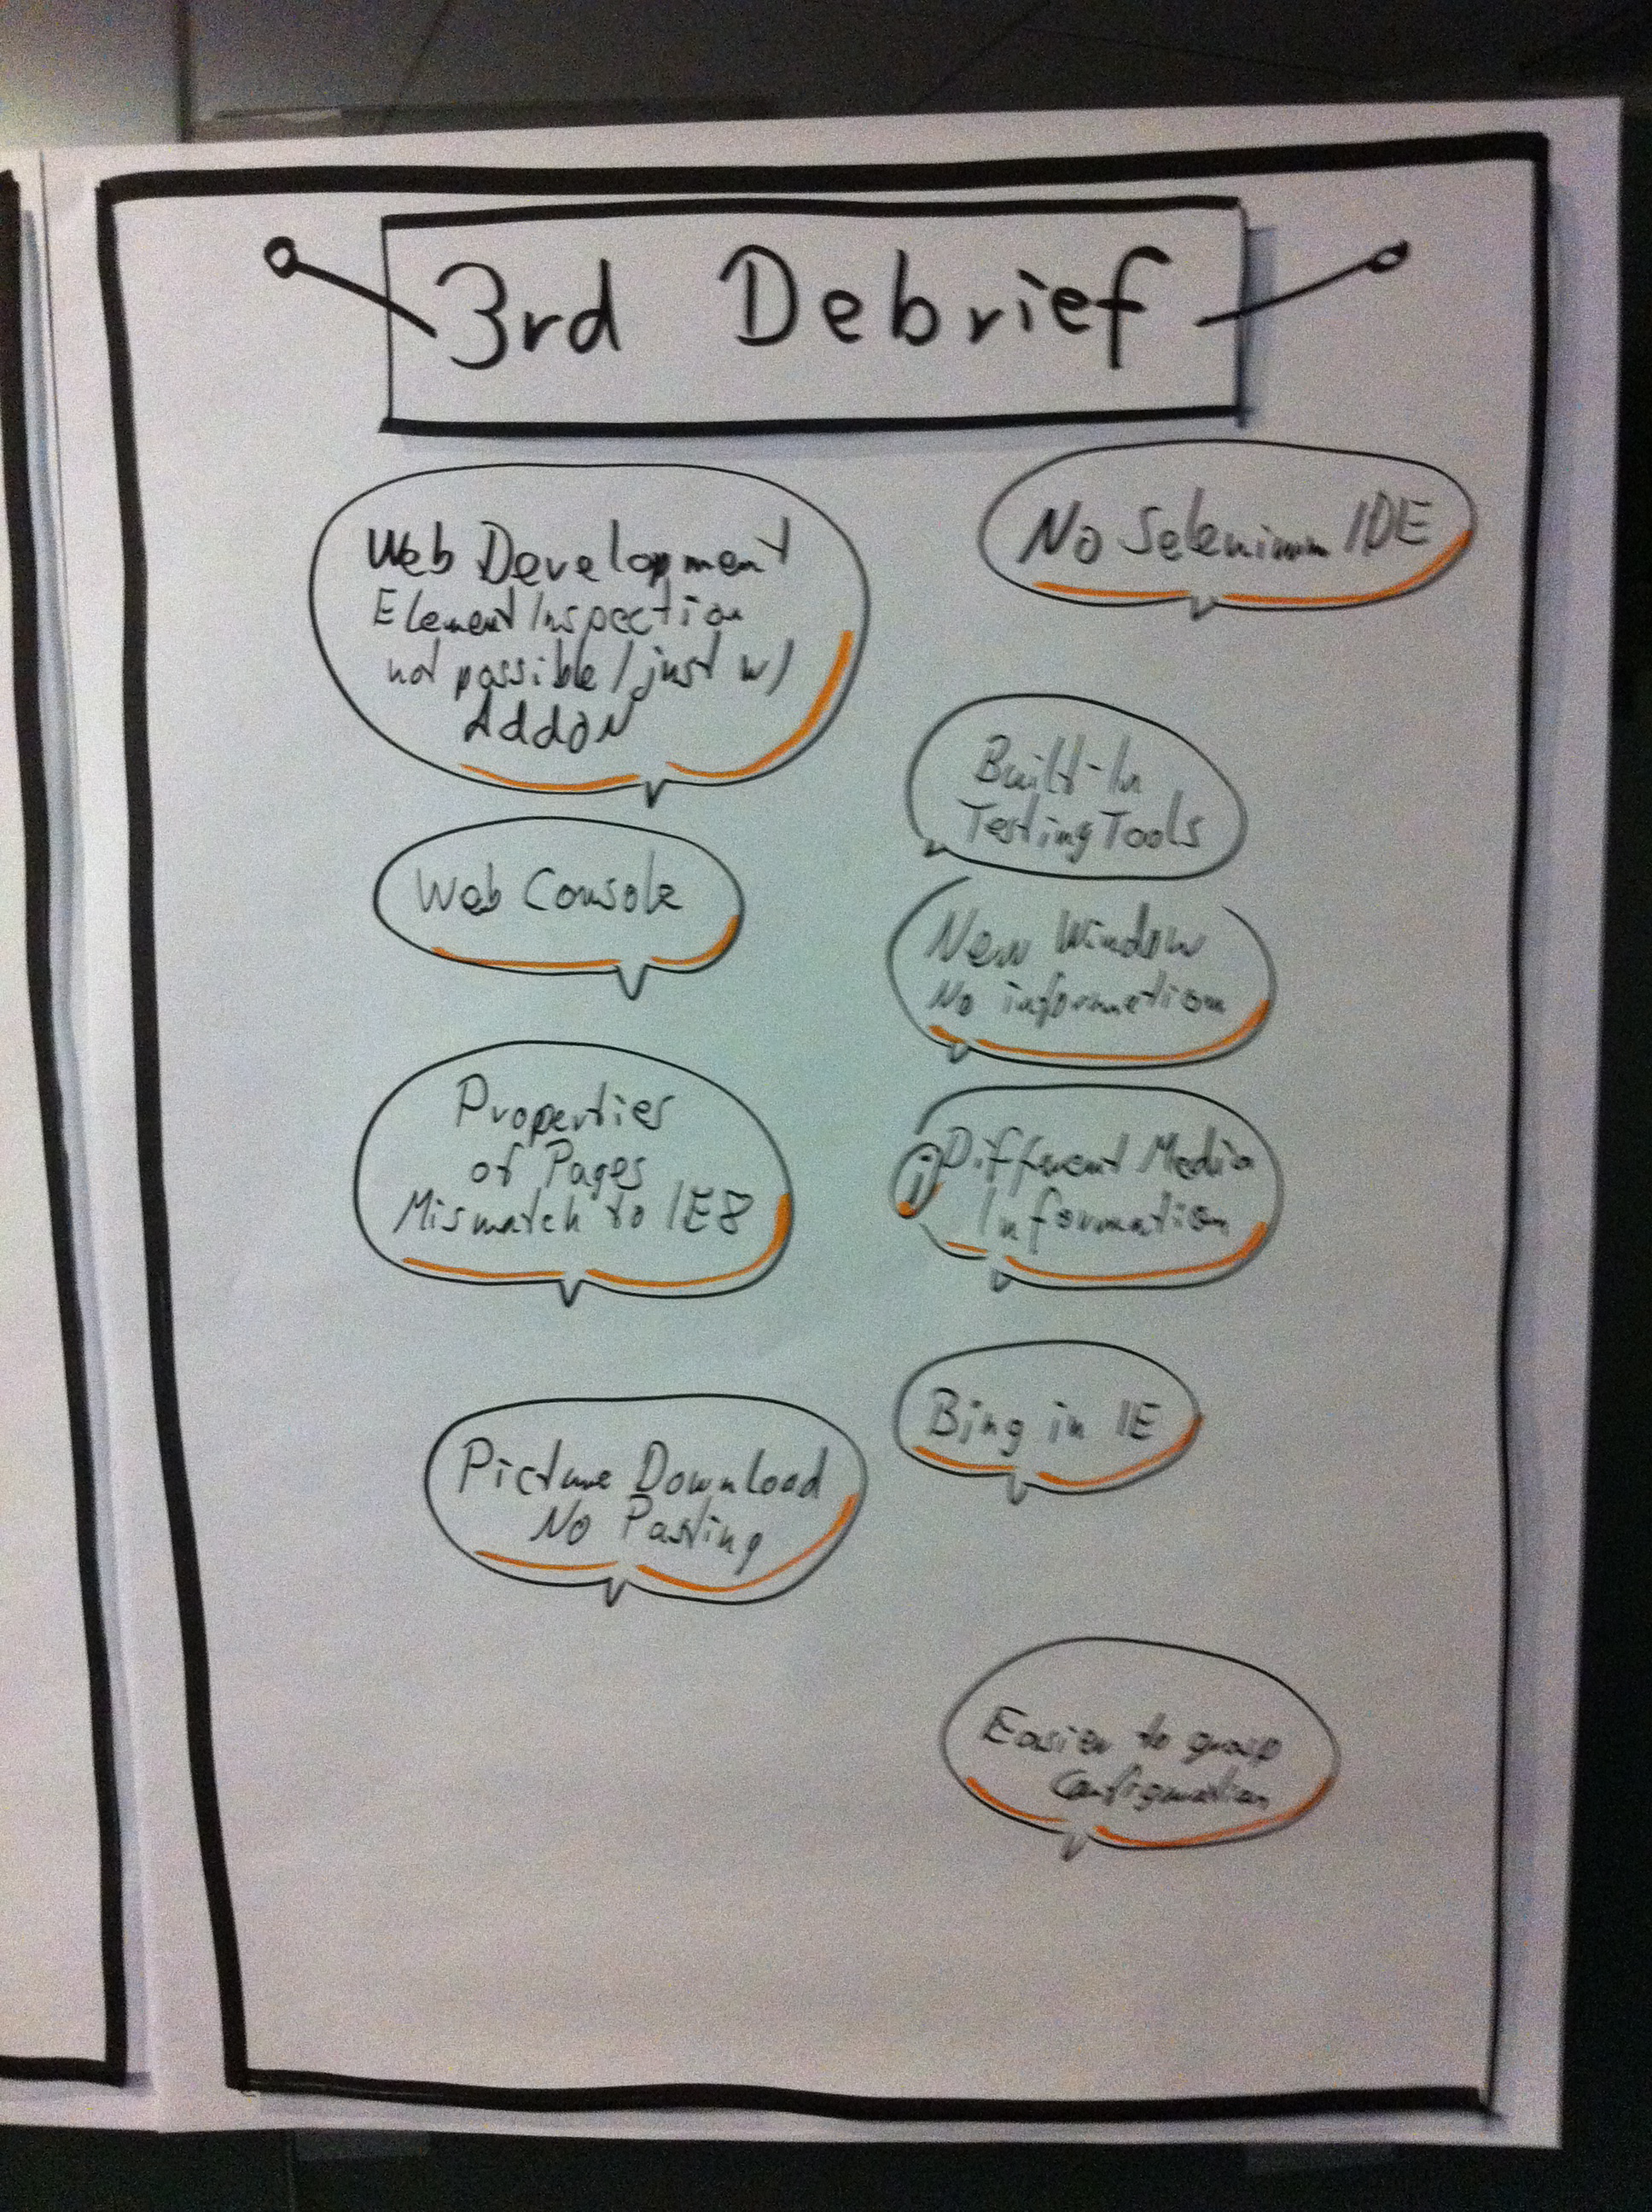 3rd Debrief
Web Development
Element Inspection
not possible / just w/
AddON
Web Console
Properties
of Pages
Mismatch to IE8
Picture Download
No Pasting
No Selenium IDE
Built-In
Testing Tools
New Window
No information
i Different Media
Information
Bing in IE
Easier to grasp
Configuration